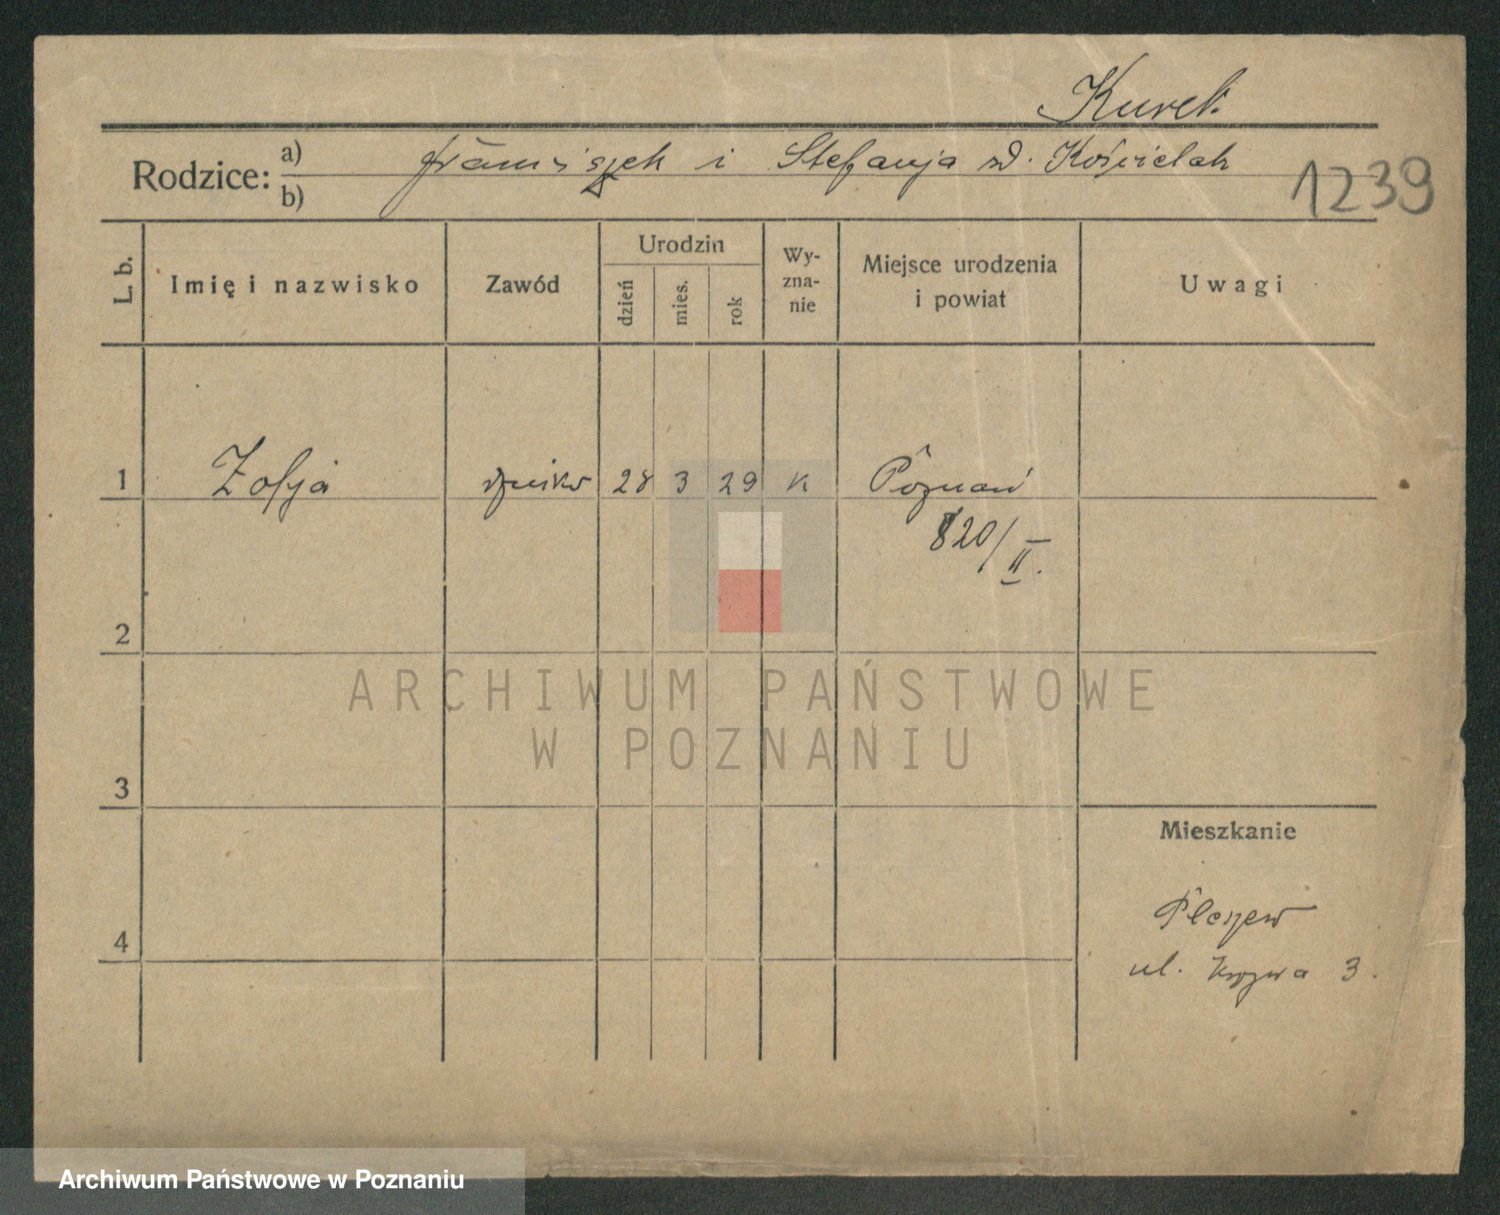 Kurek
Rodzice: a) b) Franciszek i Stefanja zd. Kościelak
1239
L. b.
Imię i nazwisko
Zawód
Urodzin
dzień
mies.
rok
Wy-
zna-
nie
Miejsce urodzenia
i powiat
Uwagi
1 Zofja dziecko 28 3 29 K Poznań
820/II.
2
3
4
Mieszkanie
Pleszew
ul. Krzywa 3.
ARCHIWUM PAŃSTWOWE
W POZNANIU
Archiwum Państwowe w Poznaniu